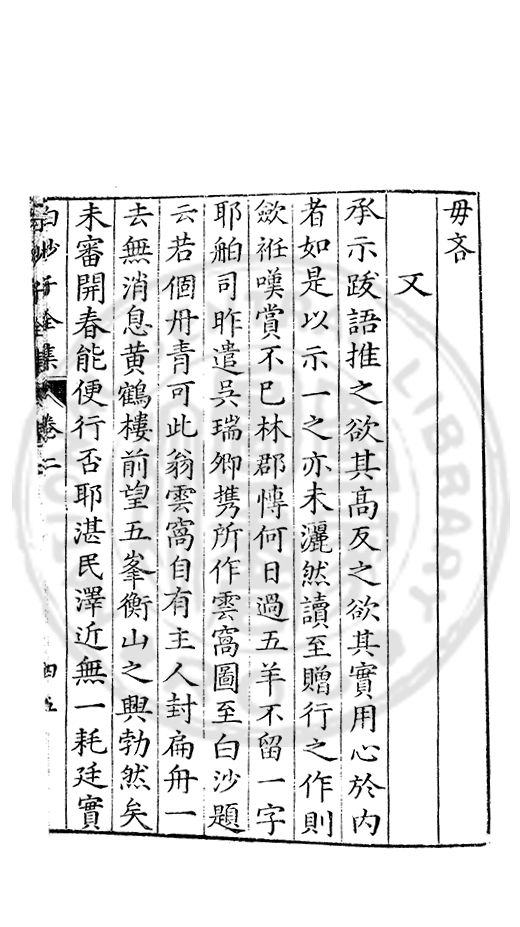 毋吝
又
承示跋語推之欲其高反之欲其實用心於内
者如是以示一之亦未灑然讀至贈行之作則
歛袵嘆賞不已林郡愽何日過五羊不留一字
耶舶司昨遣吳瑞卿携所作雲窩圖至白沙題
云若個丹青可此翁雲窩自有主人封扁舟一
去無消息黄鶴樓前望五峯衡山之興勃然矣
未審開春能便行否耶湛民澤近無一耗廷實
白沙子全集 卷二 四五